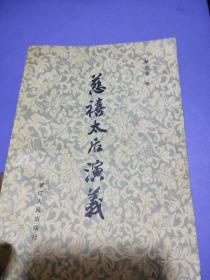 慈禧太后演義
浙江人民出版社